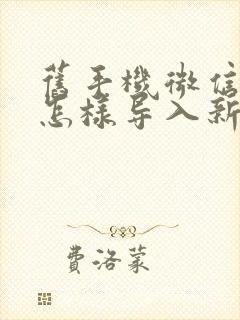 舊手機微信
怎樣导入新
費洛蒙